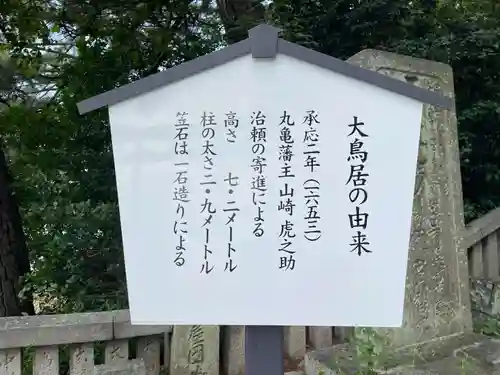 大鳥居の由来
承応二年（一六五三）
丸亀藩主山崎虎之助
治頼の寄進による
高さ　七・二メートル
柱の太さ二・九メートル
笠石は一石造りによる